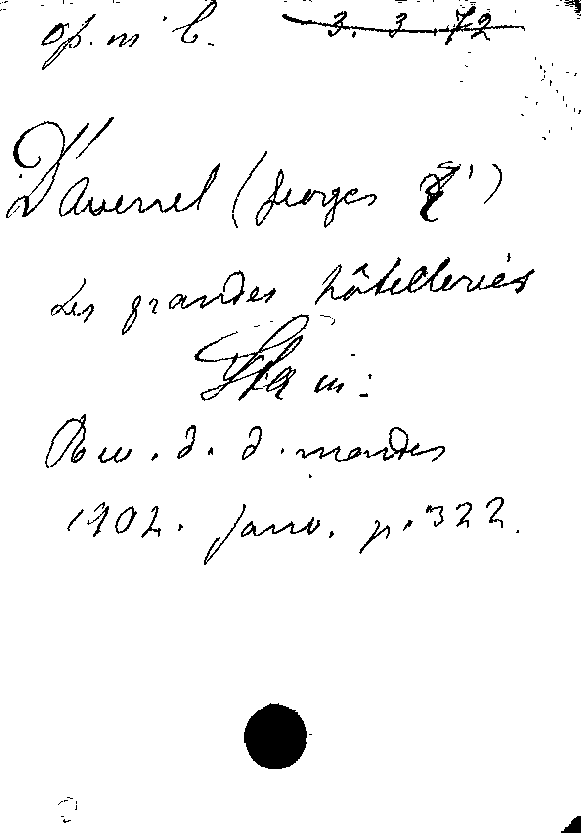 op. in b. 3. 3. 72
D'Avenel (Georges Vte)
Les grandes hôtelleries
Sta in:
Rev. d. d. mondes
1902. janv. p. 322.